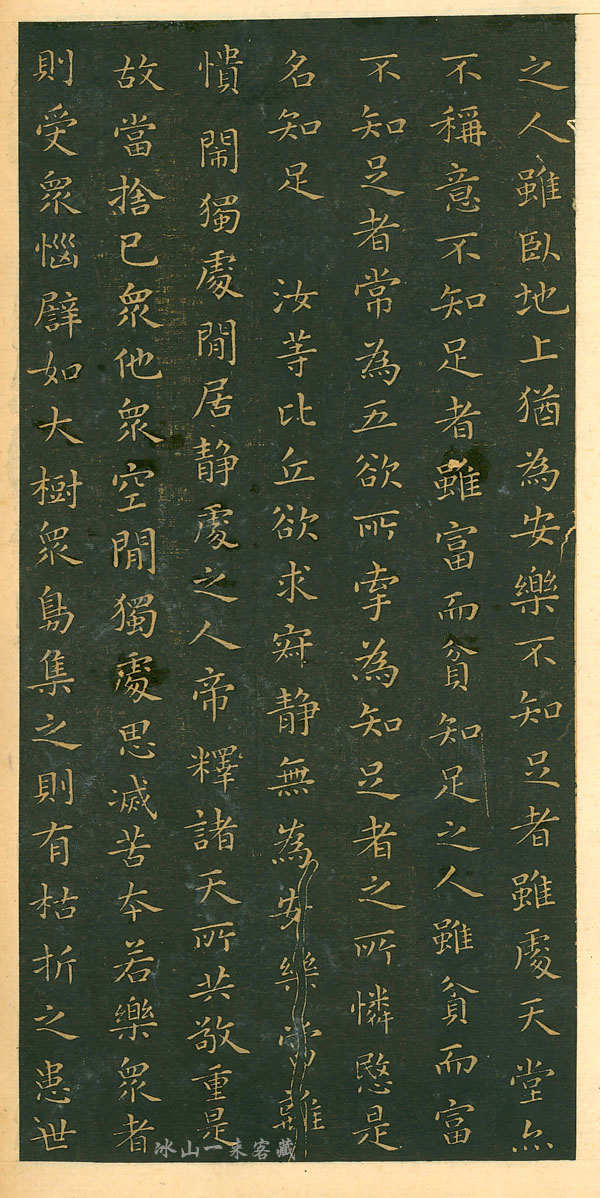 之人雖臥地上猶為安樂不知足者雖處天堂亦
不稱意不知足者雖富而貧知足之人雖貧而富
不知足者常為五欲所牽為知足者之所憐愍是
名知足 汝等比丘欲求寂静無為安樂當離
憒閙獨處閒居静處之人帝釋諸天所共敬重是
故當捨已衆他衆空閒獨處思滅苦本若樂衆者
則受衆惱譬如大樹衆鳥集之則有枯折之患世
冰山一来客藏